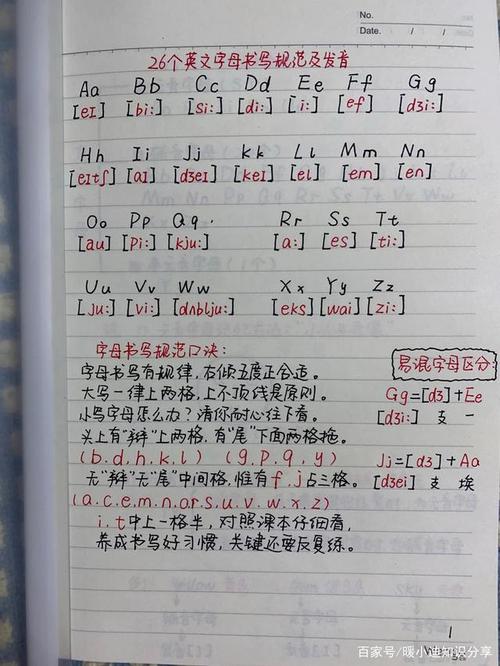 No.
Date. / /
26个英文字母书写规范及发音
Aa Bb Cc Dd Ee Ff Gg
[eI] [bi:] [si:] [di:] [i:] [ef] [dʒi:]
Hh Ii Jj kk Ll Mm Nn
[eItʃ] [aI] [dʒeI] [keI] [el] [em] [en]
Oo Pp Qq. Rr Ss Tt
[au] [pi:] [kju:] [a:] [es] [ti:]
Uu Vv Ww Xx Yy Zz
[ju:] [vi:] [dʌblju:] [eks] [wai] [zi:]
字母书写规范口诀:
字母书写有规律，右倾五度正合适。
大写一律上两格，上不顶线是原则。
小写字母怎么办？请你耐心往下看。
头上有"辫"上两格，有"尾"下面两格拖。
(b.d.h.k.l) (g.p.q.y)
无"辫"无"尾"中间格，惟有f.j占三格。
(a.c.e.m.n.o.r.s.u.v.w.x.z)
i.t中上一格半，对照课本仔细看，
养成书写好习惯，关键还要反复练。
易混字母区分:
Gg=[dʒ]+Ee
[dʒi:] 支 一
Jj=[dʒ]+Aa
[dʒei] 支 埃
1
百家号/暖小迪知识分享